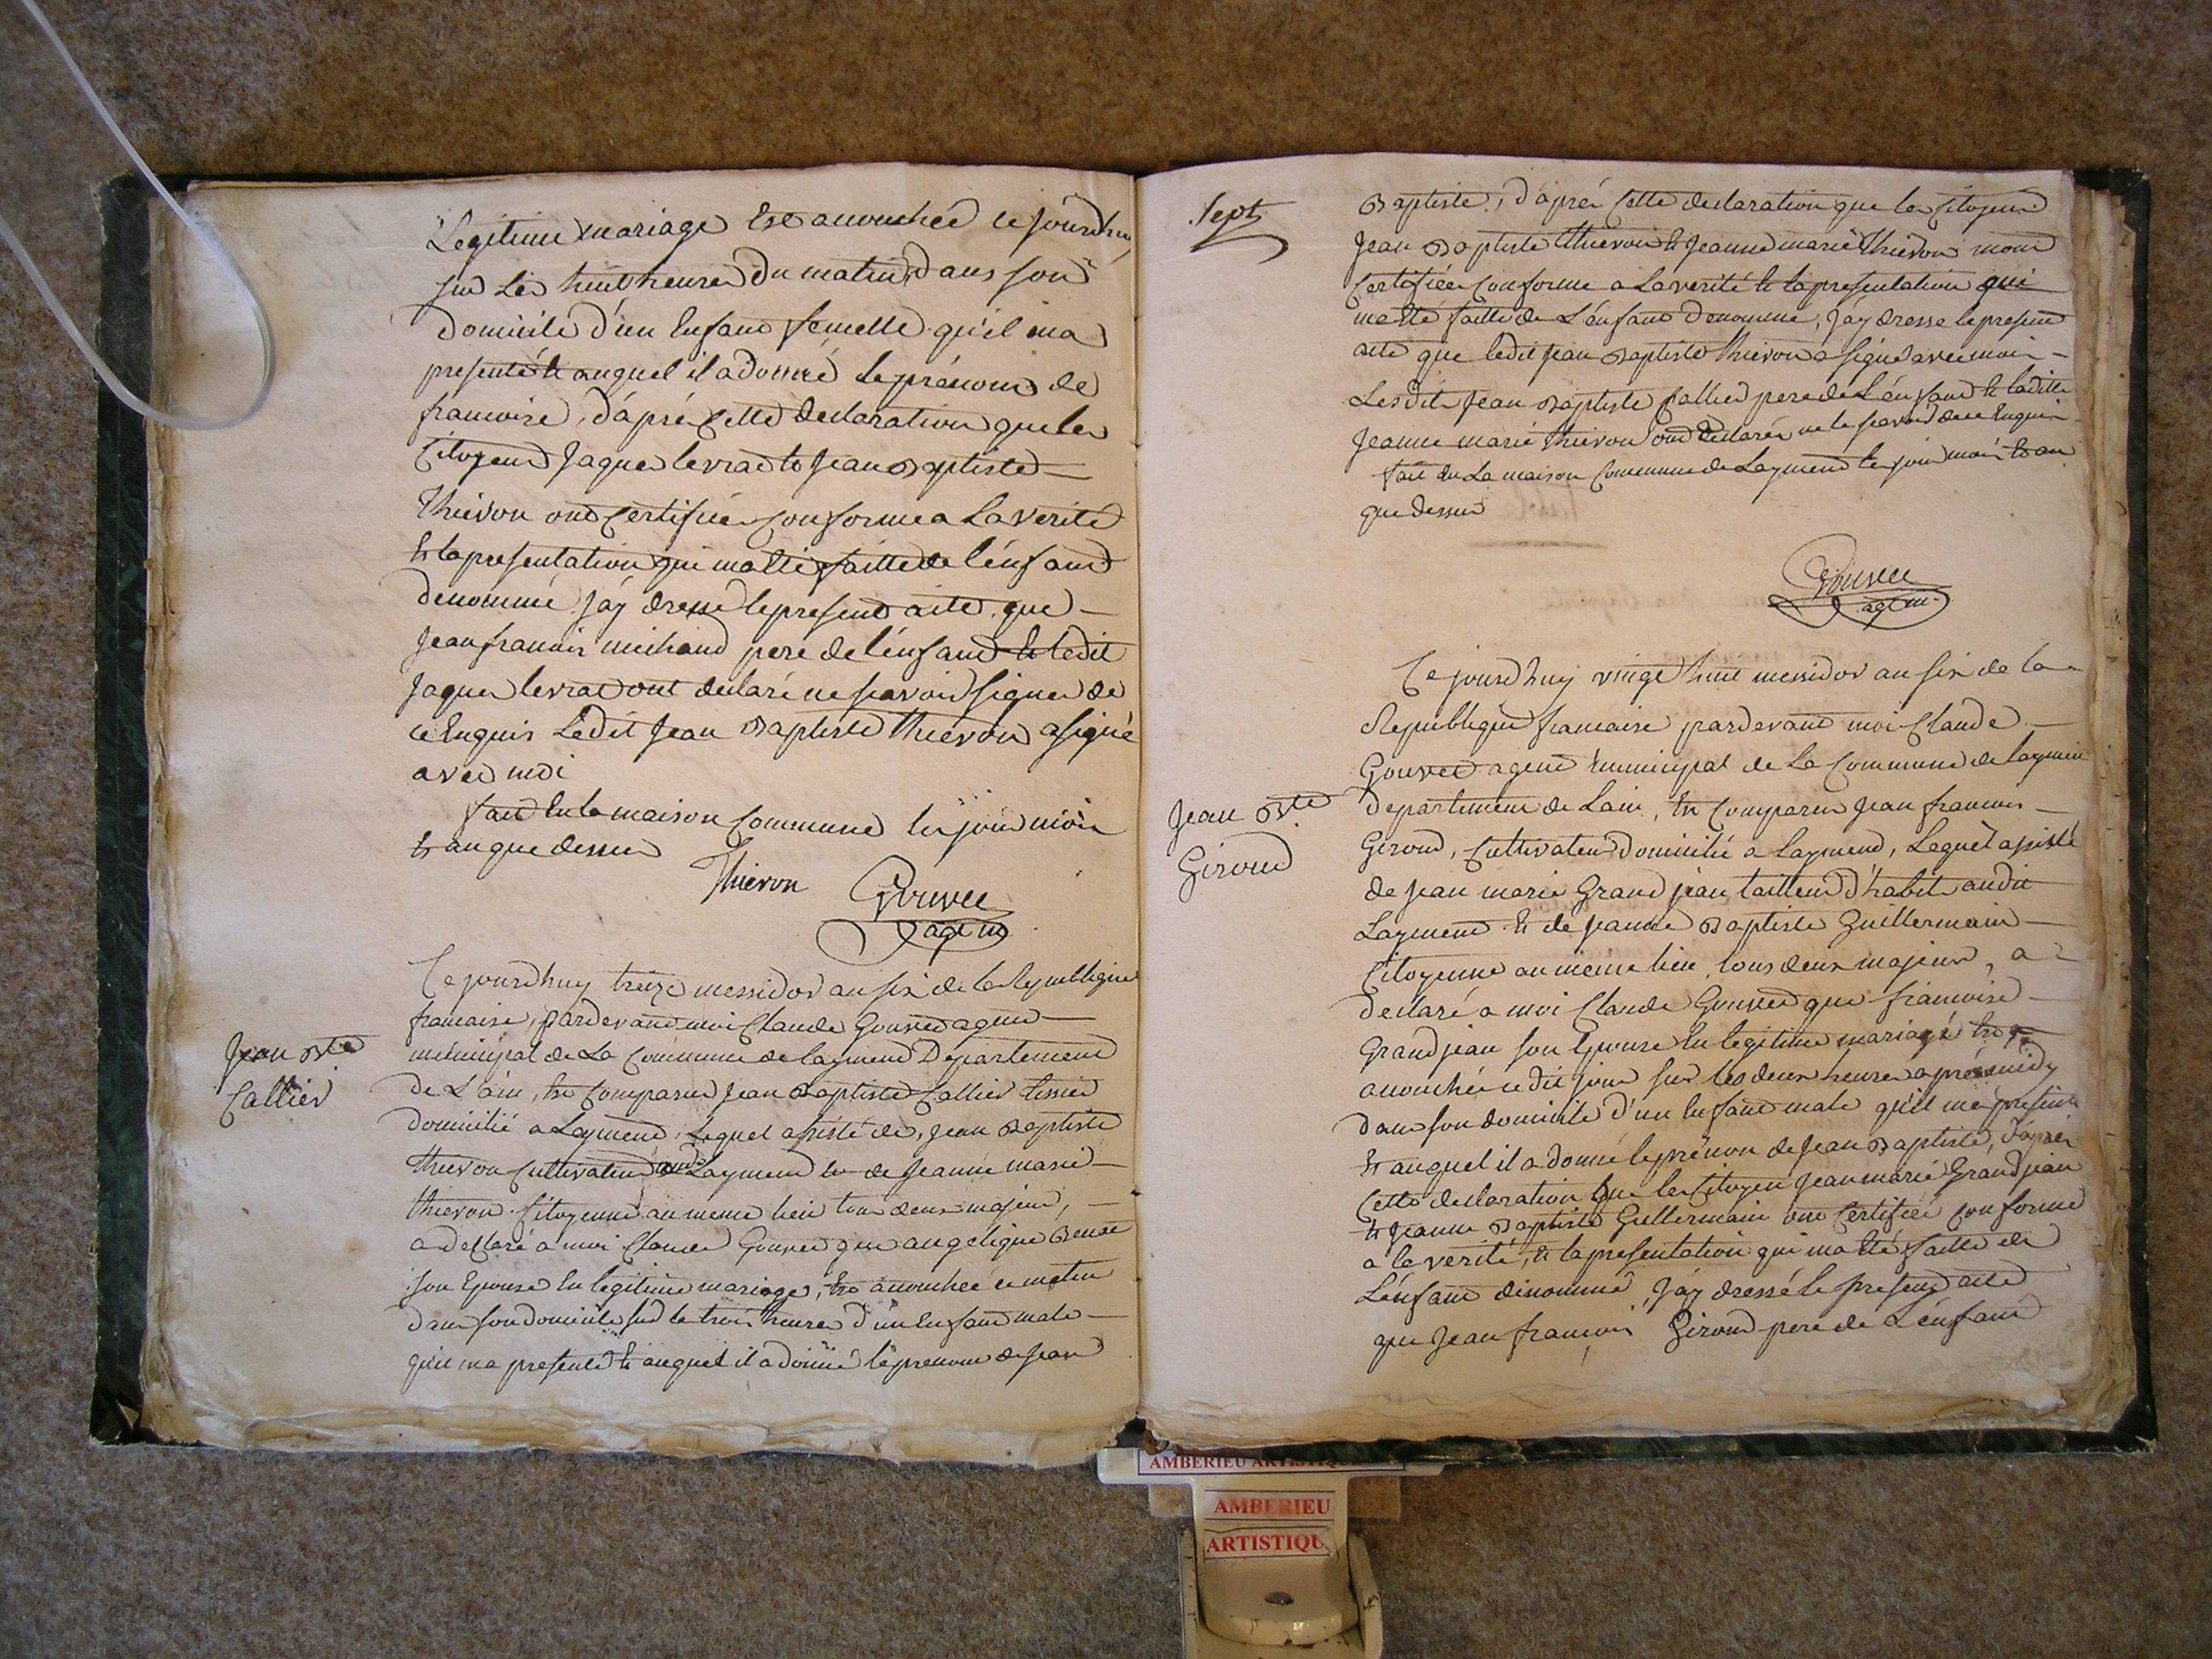 Legitime mariage Est acouchée ce jourdhuy
sur Les huit heures du matin dans son
Domicile d'un Enfant femelle qu'il ma
presenté & auquel il a donné le prénoms de
francoise, d'aprés Cette declaration que les
Citoyens Jaques levrat & Jean Baptiste
Thievon ont Certifiée Conforme a La verité
& la presentation qui ma Eté faitte de l'énfant
denommé j'ay dressé le present acte que
Jean francois michaud pere de l'énfant & ledit
Jaques levrat ont declaré ne scavoir signer de
ce Enquis Ledit Jean Baptiste Thievon a signé
avec moi
fait En la maison Commune les jour mois
& an que dessus
Thievon Gouvee
agt m
Jean Bte
Callier
Ce jourdhuy treize messidor an six de la Republique
francaise, pardevant moi Claude Gouvee agent
municipal de La Commune de layment Departement
de L'ain, Est Comparu Jean Baptiste Callier tissier
domicilié a Layment, Lequel assisté de, Jean Baptiste
Thievon Cultivateur Layment & de Jeanne marie
Thievon Citoyenne au meme lieu tous deux majeurs,
a declaré a moi Claude Gouvee que angelique Benoit
son Epouse En legitime mariage, Est acouchée ce matin
dans son domicile sur les trois heures d'un Enfant male
qu'il ma presenté & auquel il a donné le prenom de Jean
Sept
Baptiste, d'aprés Cette declaration que les Citoyens
Jean Baptiste Thievon & Jeanne marie Thievon mont
Certifiée Conforme a La verité & la presentation qui
ma Eté faitte de L'énfant denommé, J'ay dresse le present
acte que ledit Jean Baptiste Thievon a signé avec moi
Lesdits Jean Baptiste Callier pere de L'énfant & laditte
Jeanne marie Thievon ont declarés ne le scavoir de ce Enquis
fait En La maison Commune de Layment les jour mois & an
que dessus
Gouvee
agt m.
Jean Bte
Giroud
Ce jourdhuy vingt huit messidor an six de la
Republique francaise pardevant moi Claude
Gouvee agent municipal de La Commune de layment
departement de Lain, Est Comparu Jean francois
Giroud, Cultivateur domicilié a layment, Lequel assisté
de Jean marie Grandjean tailleur d'habits audit
Layment & de Jeanne Baptiste Guillermain
Citoyenne au meme lieu tous deux majeurs, a
declaré a moi Claude Gouvee que francoise
Grandjean son Epouse En legitime mariage Est
acouchée cedit jour sur les deux heures aprés midy
dans son domicile d'un Enfant male qu'il ma presenté
& auquel il a donné le prénon de Jean Baptiste, d'apres
Cette declaration que les Citoyen Jean marie Grandjean
& Jeanne Baptiste Guillermain ont Certifiée conforme
a la verité, & la presentation qui ma Eté faitte de
L'énfant denommé, J'ay dressé le present acte
que Jean francois Giroud pere de L'énfant
AMBERIEU
AMBERIEU
ARTISTIQU